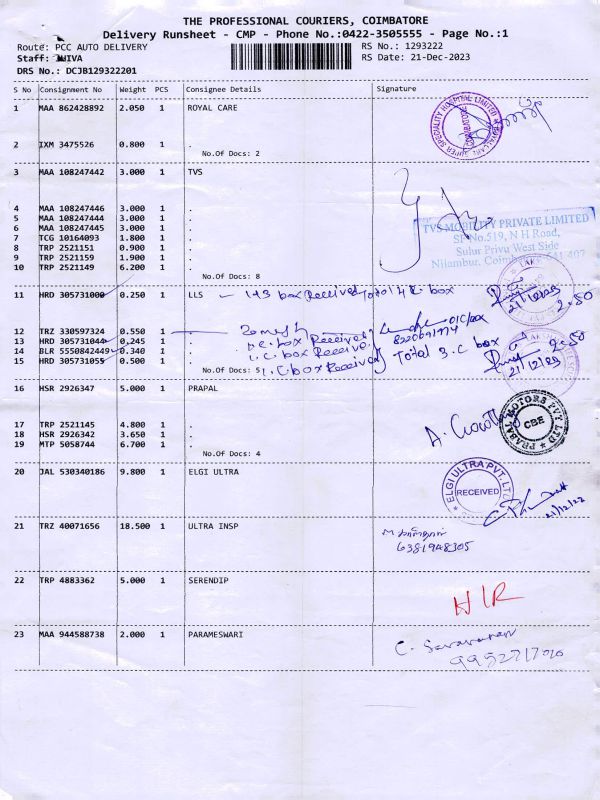 THE PROFESSIONAL COURIERS, COIMBATORE
Delivery Runsheet - CMP - Phone No.:0422-3505555 - Page No.:1
Route: PCC AUTO DELIVERY RS No.: 1293222
Staff: RS Date: 21-Dec-2023
DRS No.: DCJB129322201
S No Consignment No Weight PCS Consignee Details Signature
1 MAA 862428892 2.050 1 ROYAL CARE
SUPER SPECIALITY HOSPITAL LIMITED ROYAL CARE COIMBATORE
2 IXM 3475526 0.800 1 .
No.Of Docs: 2
3 MAA 108247442 3.000 1 TVS
4 MAA 108247446 3.000 1 .
5 MAA 108247444 3.000 1 .
6 MAA 108247445 3.000 1 .
7 TCG 10164093 1.800 1 .
8 TRP 2521151 0.900 1 .
9 TRP 2521159 1.900 1 .
10 TRP 2521149 6.200 1 .
No.Of Docs: 8
TVS MOBILITY PRIVATE LIMITED
SF No.519, N H Road,
Sulur Privu West Side
Nilambur, Coimbatore 641 407
11 HRD 305731000 0.250 1 LLS box Received Total box
21/12/23 2.50
12 TRZ 330597324 0.550 1 .
13 HRD 305731044 0,245 1 . box Received 8220691974
14 BLR 5550842449 0.340 1 . box Received. Total 3. C box 2.50
15 HRD 305731055 0.500 1 . box Received 21/12/23
No.Of Docs: 5
16 HSR 2926347 5.000 1 PRAPAL
17 TRP 2521145 4.800 1 .
18 HSR 2926342 3.650 1 .
19 MTP 5058744 6.700 1 .
No.Of Docs: 4
PRABAL MOTORS PVT LTD CBE
20 JAL 530340186 9.800 1 ELGI ULTRA
ELGI ULTRA PVT. LTD RECEIVED
21 TRZ 40071656 18.500 1 ULTRA INSP
6381948305
22 TRP 4883362 5.000 1 SERENDIP
HIR
23 MAA 944588738 2.000 1 PARAMESWARI
C. Saravanan